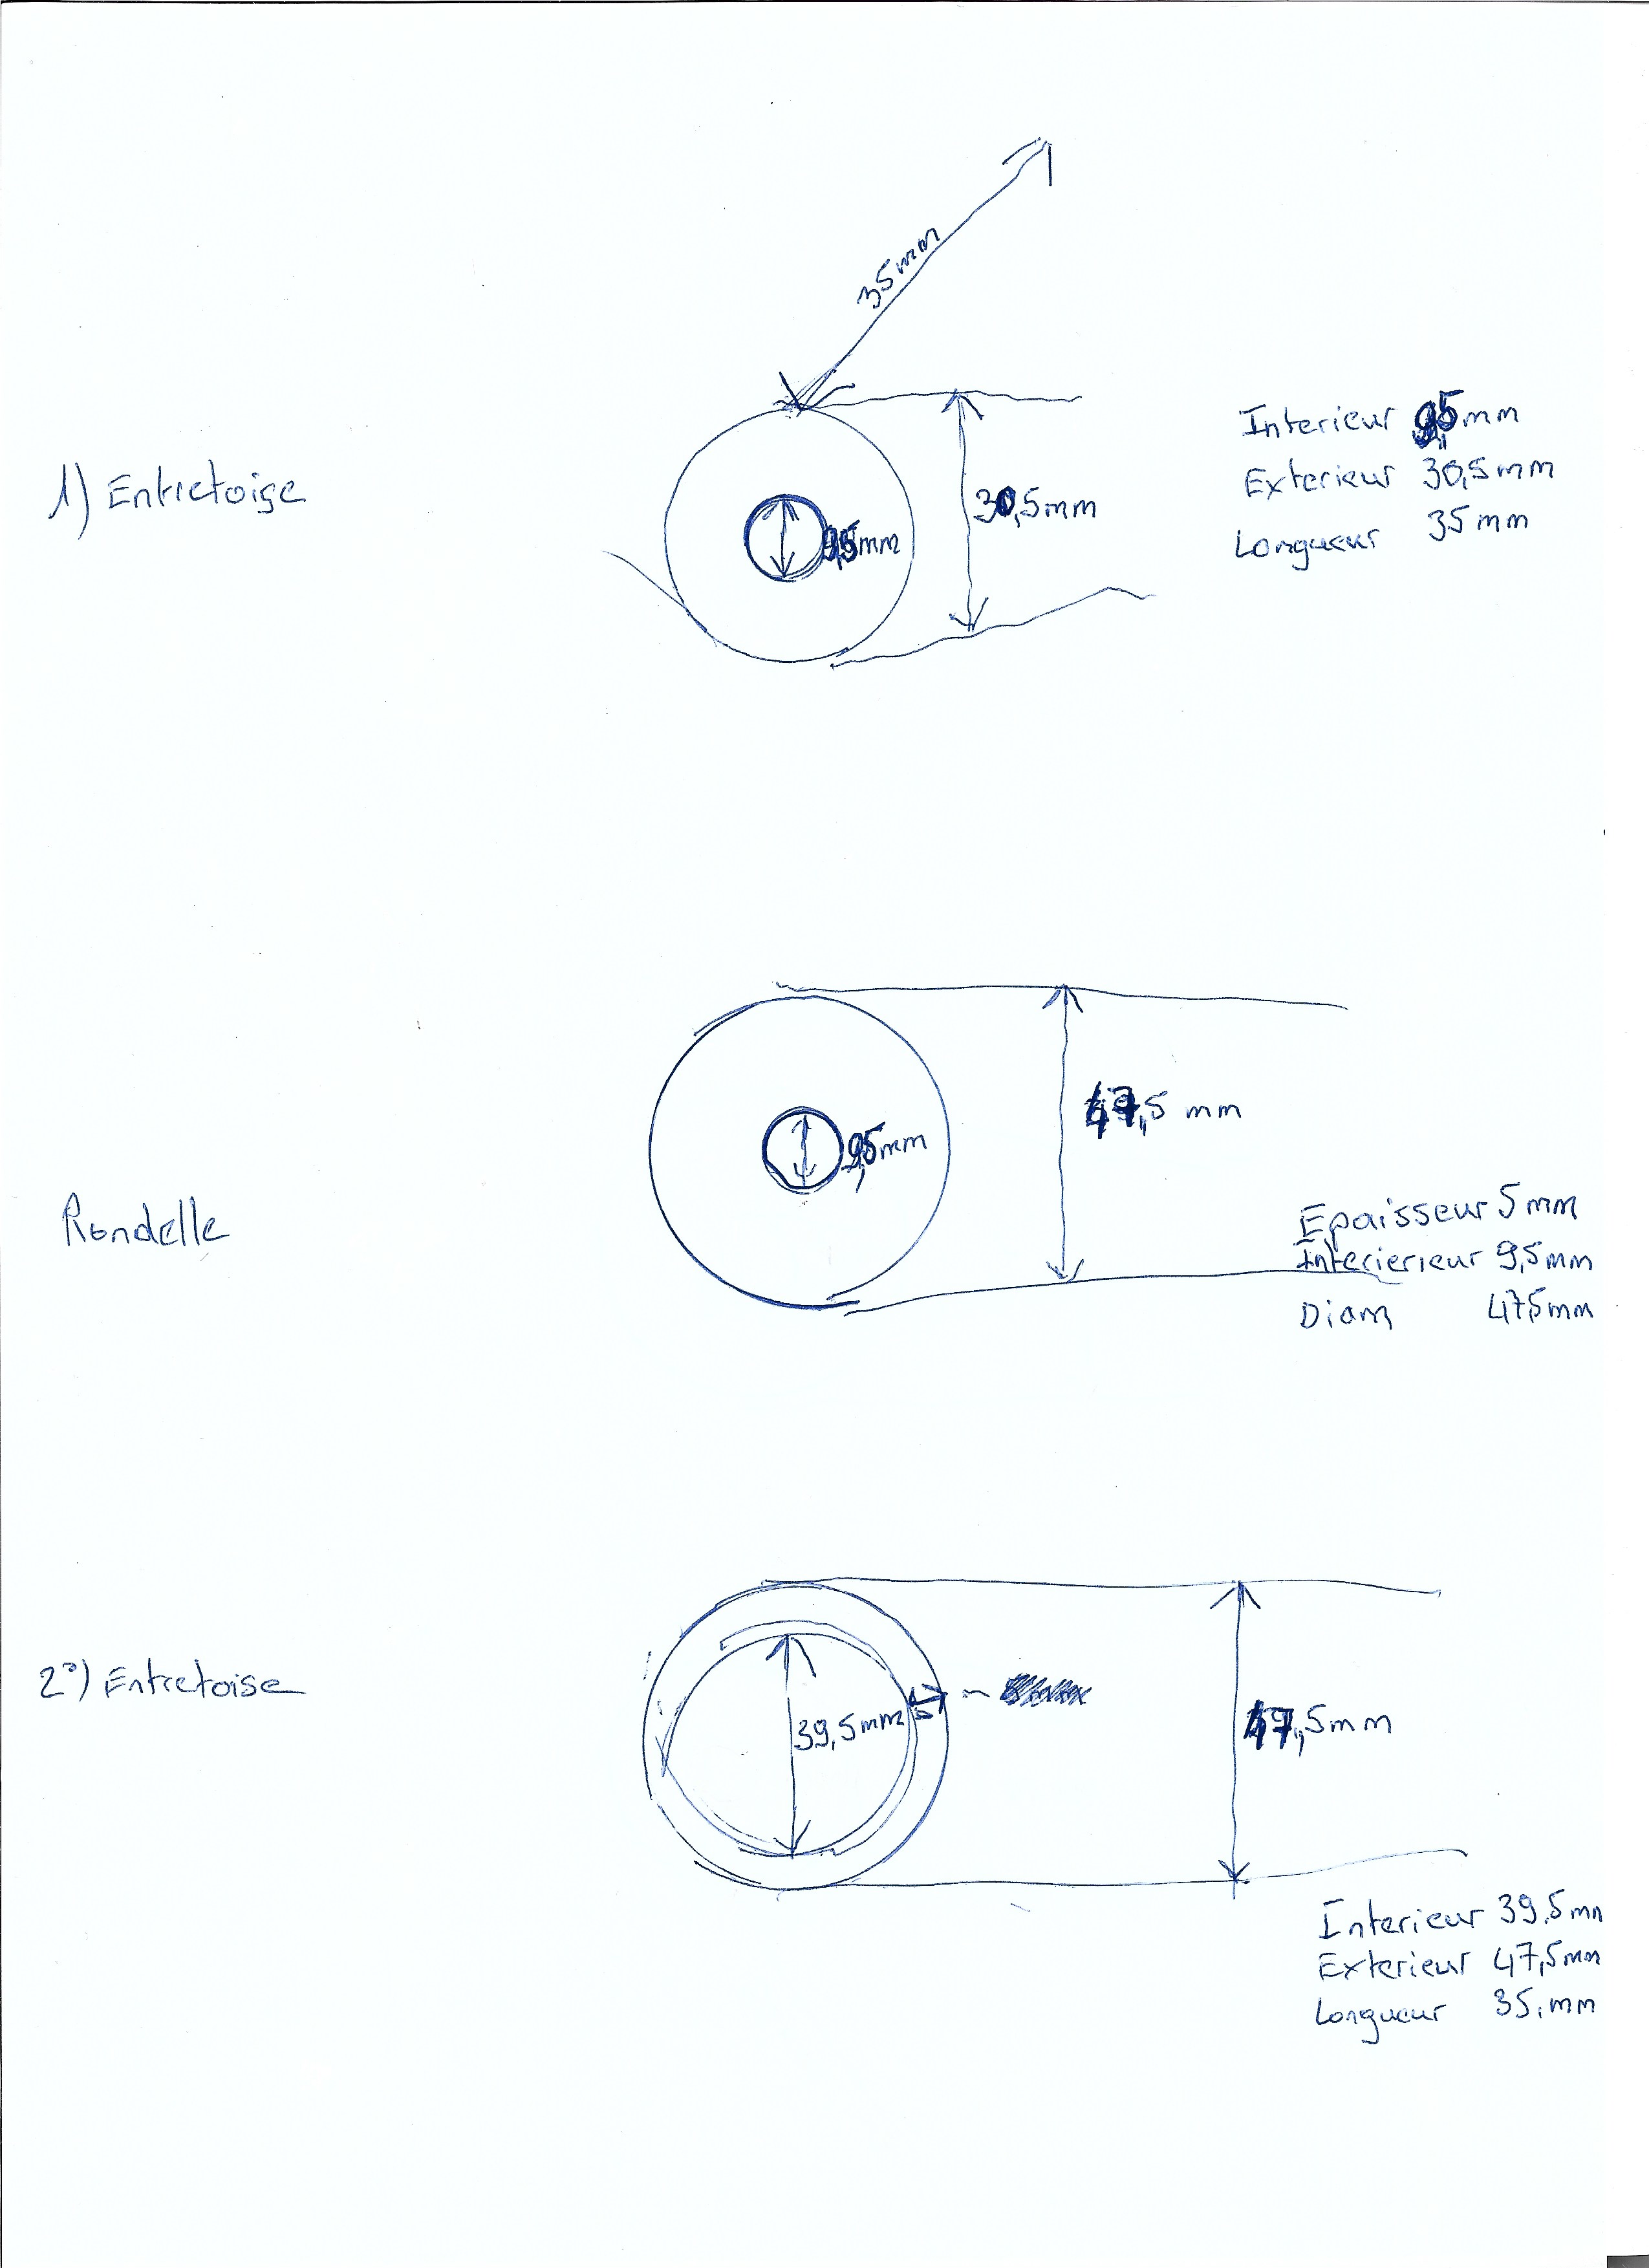 35mm
1) Entretoise
9,5mm
30,5mm
Interieur 9,5mm
Exterieur 30,5mm
Longueur 35mm
47,5 mm
9,5mm
Rondelle
Epaisseur 5mm
Interierieur 9,5mm
Diam 47,5mm
2°) Entretoise
39,5mm
47,5mm
Interieur 39,5mm
Exterieur 47,5mm
Longueur 35,mm